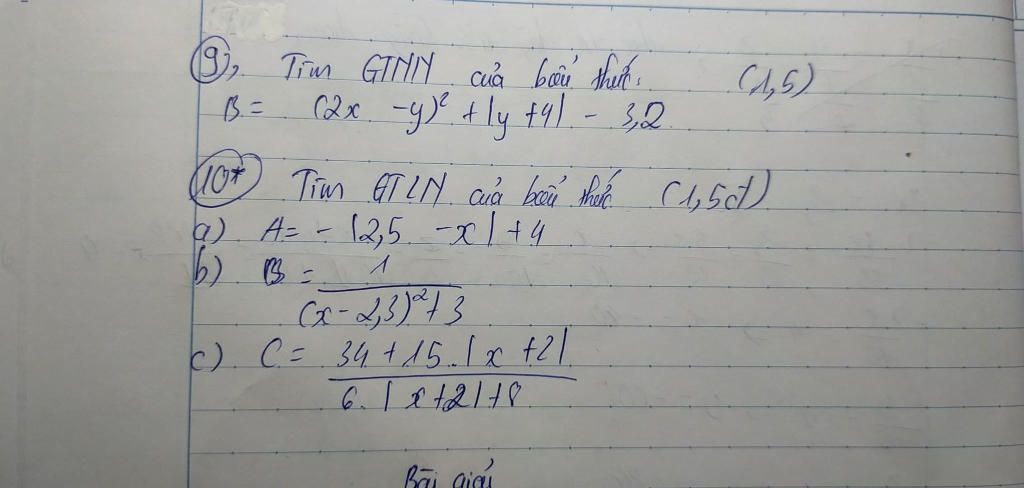 9), Tìm GTNN của biểu thức: (1,5)
B = (2x - y)² + |y + 4| - 3,2
10* Tìm GTLN của biểu thức (1,5đ)
a) A = - |2,5 - x| + 4
b) B = 1
(x - 2,3)² + 3
c) C = 34 + 15. |x + 2|
6. |x + 2| + 8
Bài giải